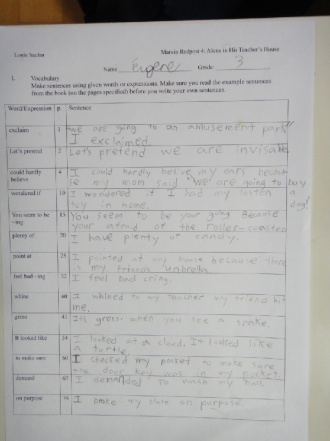 Louis Sachar
Marvin Redpost 4: Alone in His Teacher's House
Name Eugene Grade 3
1. Vocabulary
Make sentences using given words or expressions. Make sure you read the example sentences
from the book (on the pages specified) before you write your own sentences.
Word/Expression p. Sentence
exclaim 1 "we are going to an amusement park"
I exclaimed.
Let's pretend Let's pretend we are
could hardly believe 4 I could hardly my ears
my mom said "we are going to buy
dog!"
wondered if 10 I wondered if I had my
toy in home.
You seem to be -ing 15 You seem to be
your afraid of the roller-coaster
plenty of 20 I have plenty of candy.
point at 25 I pointed at my house because there
is my friends umbrella
feel bad -ing 32 I feel bad
whine I whined to my teacher my friend hit
me.
gross It's gross when you see a snake.
It looked like I looked at a cloud. It looked like
a turtle.
to make sure 60 I checked my pocket to make sure
door key was in my pocket.
demand 67 I demanded to wash my
on purpose I broke my on purpose.